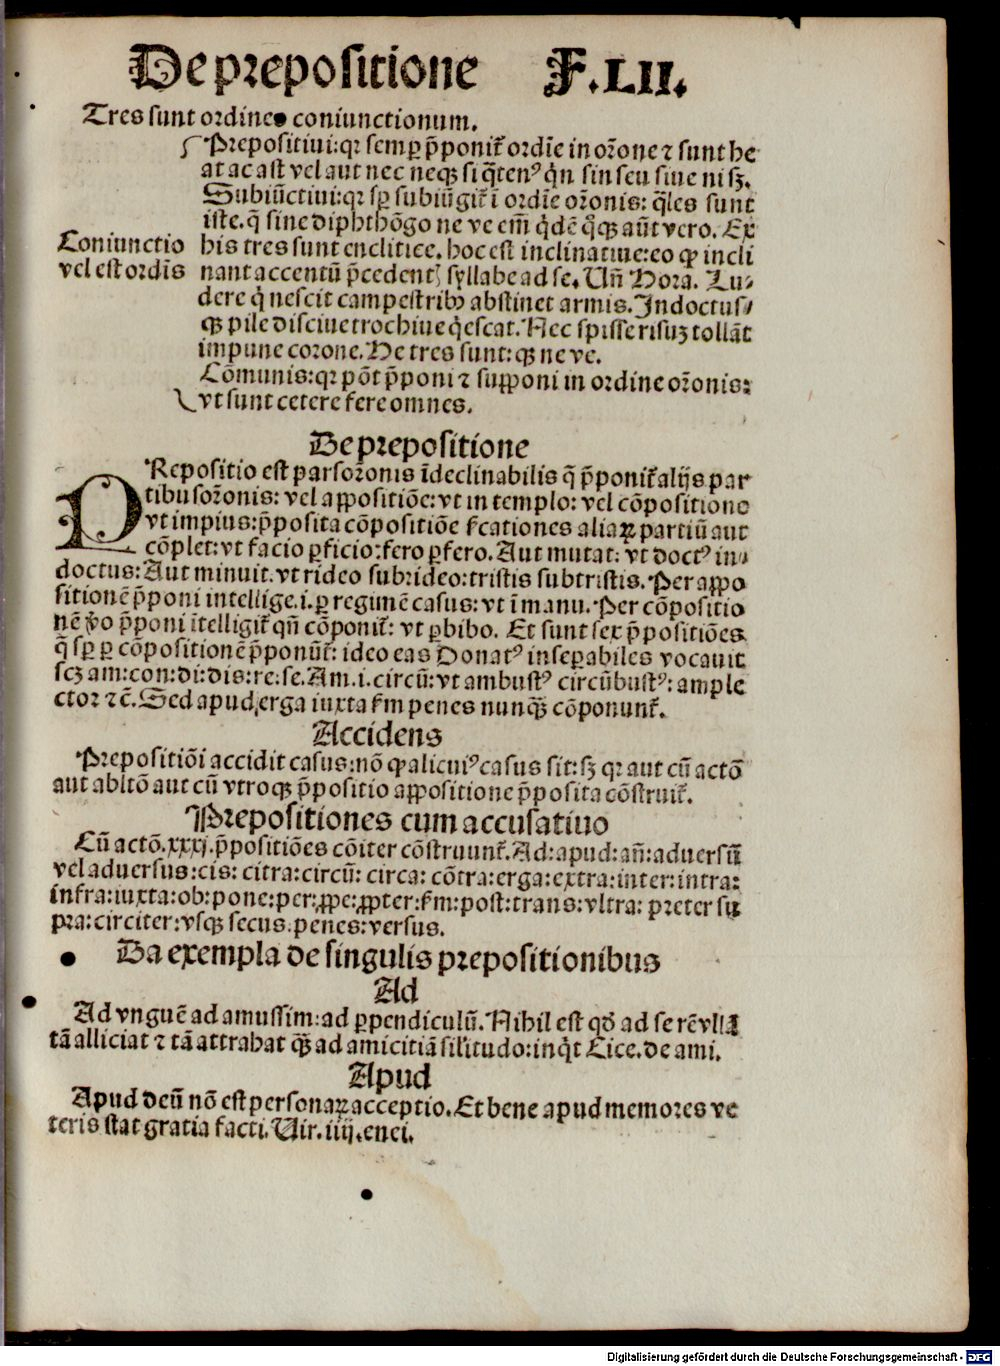 De prepositione F.LII.
Tres sunt ordines coniunctionum.
Prepositiui: qꝛ semꝑ p̄ponit᷑ ordīe in oꝛ̄one ⁊ sunt he
at ac ast vel aut nec neqꝫ si q̄tenꝰ qͥn sin seu siue nisꝫ.
Subiūctiui: qꝛ sꝑ subiūgit᷑ ī ordīe oꝛ̄onis: q̄les sunt
iste. q̄ sine diphthōgo ne ve em̄ qͥdē qͦqꝫ aūt vero. Ex
Coniunctio
vel est ordīs
his tres sunt enclitice. hoc est inclinatiue: eo ꝙ incli
nant accentū p̄cedentꝭ syllabe ad se. Vñ Hora. Lu⸗
dere qͥ nescit campestribꝰ abstinet armis. Indoctus⸗
qꝫ pile disciue trochiue qͥescat. Nec spisse risuꝫ tollāt
impune corone. He tres sunt: qꝫ ne ve.
Cōmunis: qꝛ pōt p̄poni ⁊ suꝓponi in ordine oꝛ̄onis:
vt sunt cetere fere omnes.
De prepositione
PRepositio est pars oꝛ̄onis īdeclinabilis q̄ p̄ponit᷑ alijs par
tibus oꝛ̄onis: vel aꝓpositiōe: vt in templo: vel cōpositione
vt impius: p̄posita cōpositiōe ſ̄cationes aliaꝝ partiū aut
cōplet: vt facio ꝑficio: fero ꝑfero. Aut mutat: vt doctꝰ in⸗
doctus: Aut minuit. vt rideo subrideo: tristis subtristis. Per aꝓpo
sitionē p̄poni intellige .i. ꝑ regimē casus: vt ī manu. Per cōpositio
nē v̄o p̄poni ītelligit᷑ qñ cōponit᷑: vt ꝑhibo. Et sunt sex p̄positiōes
q̄ sꝑ ꝑ cōpositionē p̄ponūt᷑: ideo eas Donatꝰ inseꝑabiles vocauit
scꝫ am: con: di: dis: re: se. Am .i. circū: vt ambustꝰ circūbustꝰ: ample
ctor ⁊ c̄. Sed apud, erga iuxta ſm penes nunqꝫ̄ cōponunt᷑.
Accidens
Prepositiōi accidit casus: nō ꝙ alicuiꝰ casus sit: sꝫ qꝛ aut cū actō
aut abltō aut cū vtroqꝫ p̄positio aꝓpositione p̄posita cōstruit᷑.
Prepositiones cum accusatiuo
Cū actō .xxxj. p̄positiōes cōiter cōstruunt᷑. Ad: apud: añ: aduersū
vel aduersus: cis: citra: circū: circa: cōtra: erga: extra: inter: intra:
infra: iuxta: ob: pone: per: ꝓpe: ꝓpter: ſm: post: trans: vltra: preter su
pra: circiter: vsqꝫ secus. penes: versus.
Da exempla de singulis prepositionibus
Ad
Ad vnguē ad amussim: ad ꝑpendiculū. Nihil est qd̄ ad se rē vllā
tā alliciat ⁊ tā attrahat qꝫ̄ ad amicitiā sil'itudo: inqͥt Cice. de ami.
Apud
Apud deū nō est personaꝝ acceptio. Et bene apud memores ve
teris stat gratia facti. Vir. iiij. enei.
Digitalisierung gefördert durch die Deutsche Forschungsgemeinschaft - DFG